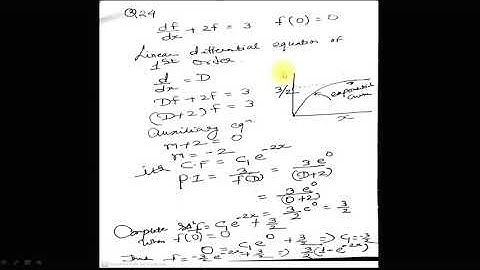 Q24
df/dx + 2f = 3   f(0) = 0
Linear differential equation of
1st order.
d/dx = D
Df + 2f = 3
(D+2)f = 3
Auxiliary eqn
m+2 = 0
m = -2
its C.F = C₁e^-2x
PI = 3/f(D) = 3e^0/(D+2)
= 3e^0/(0+2) = 3/2 e^0 = 3/2
Complete solⁿ f = C₁e^-2x + 3/2
When f(0) = 0
0 = C₁e^0 + 3/2 => C₁ = -3/2
Thus f = -3/2 e^-2x + 3/2 => 3/2(1-e^-2x)
3/2
exponential
curve
x